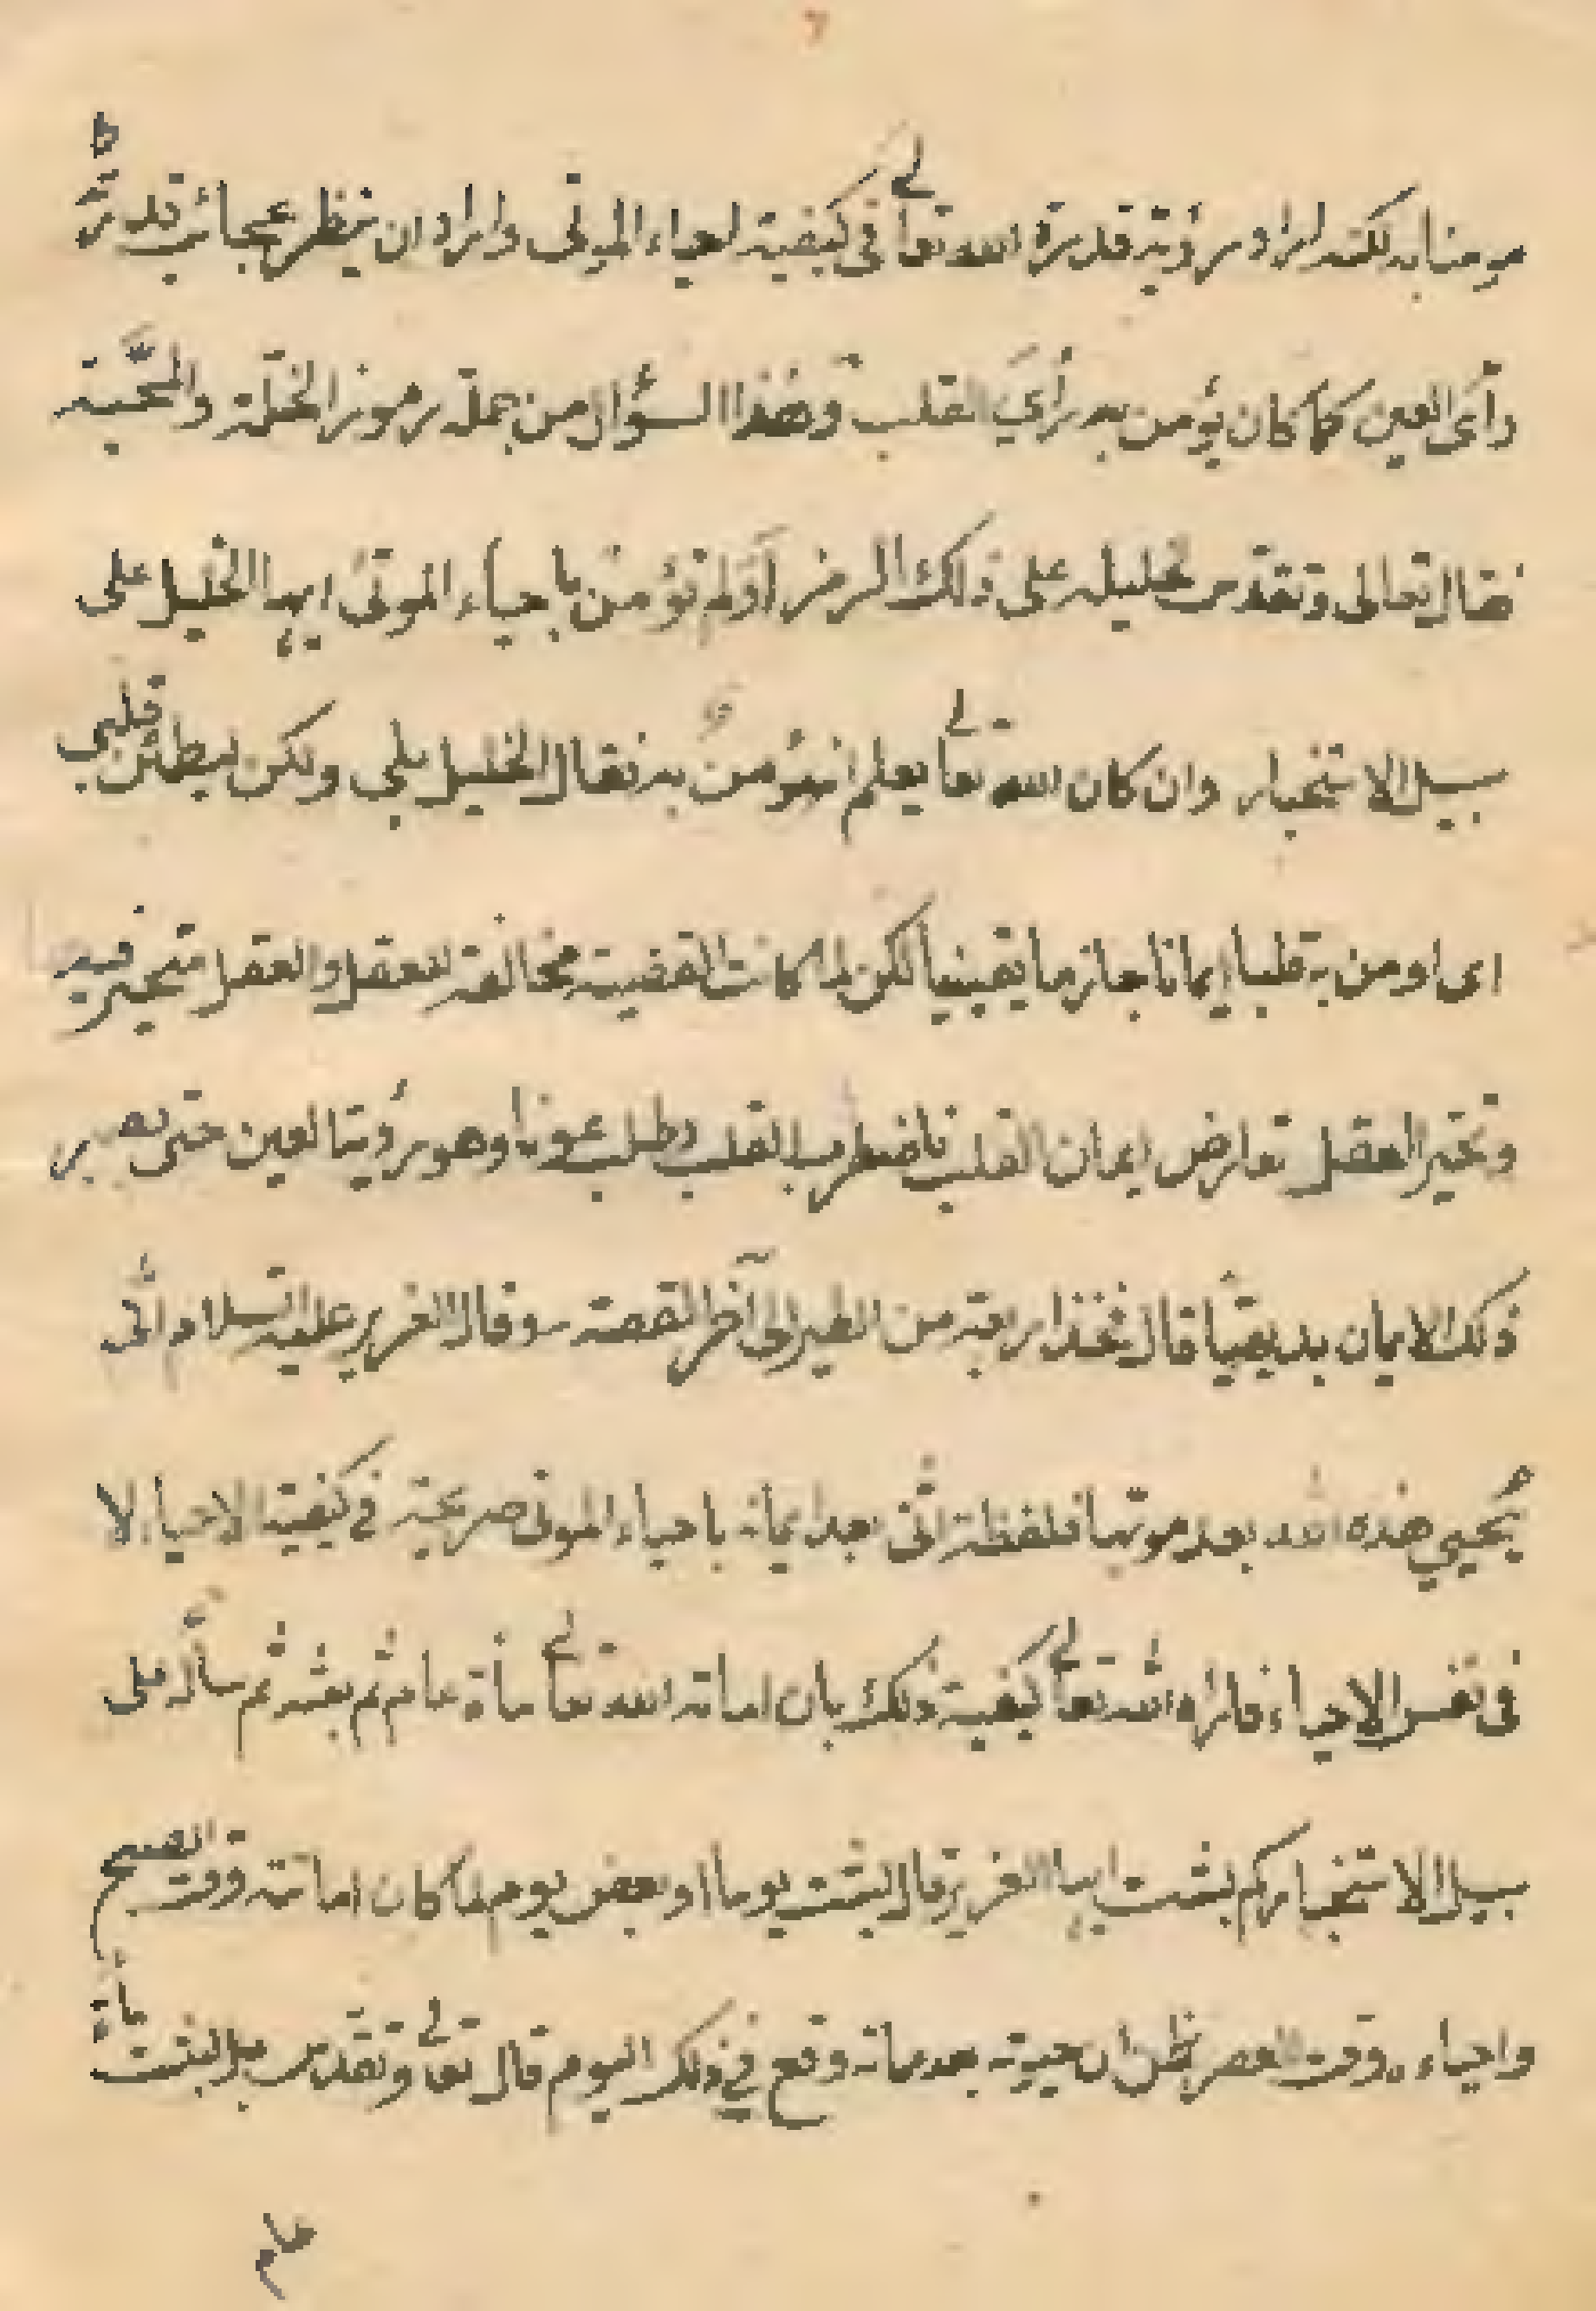 مومنا به لكنه اراد رؤية قدرة الله تعالى فى كيفية احياء الموتى واراد ان ينظر عجائب قدرته
رأى العين كما كان يؤمن به رأي القلب وهذا السؤال من جملة رموز الخلة والمحبة
فقال تعالى وتقدس لخليله على ذلك الرمز اَوَلم تؤمن باحياء الموتى ايها الخليل على
سبيل الاستخبار وان كان الله تعالى يعلم انه يؤمن به فقال الخليل بلى ولكن ليطمئن قلبي
اى اومن به قلبا ايمانا جازما يقينيا لكن لما كانت القضية مخالفة للعقل والعقل متحير فيه
وتحير العقل تعارض ايمان القلب فاضطرب القلب وطلب عونا وهو رؤية العين حتى يصير
ذلك الايمان بديهيا قال فخذ اربعة من الطير الى آخر القصة وقال العزير عليه السلام انّى
يُحيي هذه الله بعد موتها فلفظة انّى بعد ايمانه باحياء الموتى صريحة في كيفية الاحياء لا
فى نفس الاحياء فاراه الله تعالى كيفية ذلك بان اماته الله تعالى مأة عام ثم بعثه ثم سأله على
سبيل الاستخبار كم لبثت ايها العزير قال لبثت يوما او بعض يوم لما كان اماتته وقت الصبح
واحياءه وقت العصر فظن ان حيوته بعد مماته وقع في ذلك اليوم قال تعالى وتقدس بل لبثت مأة
عام